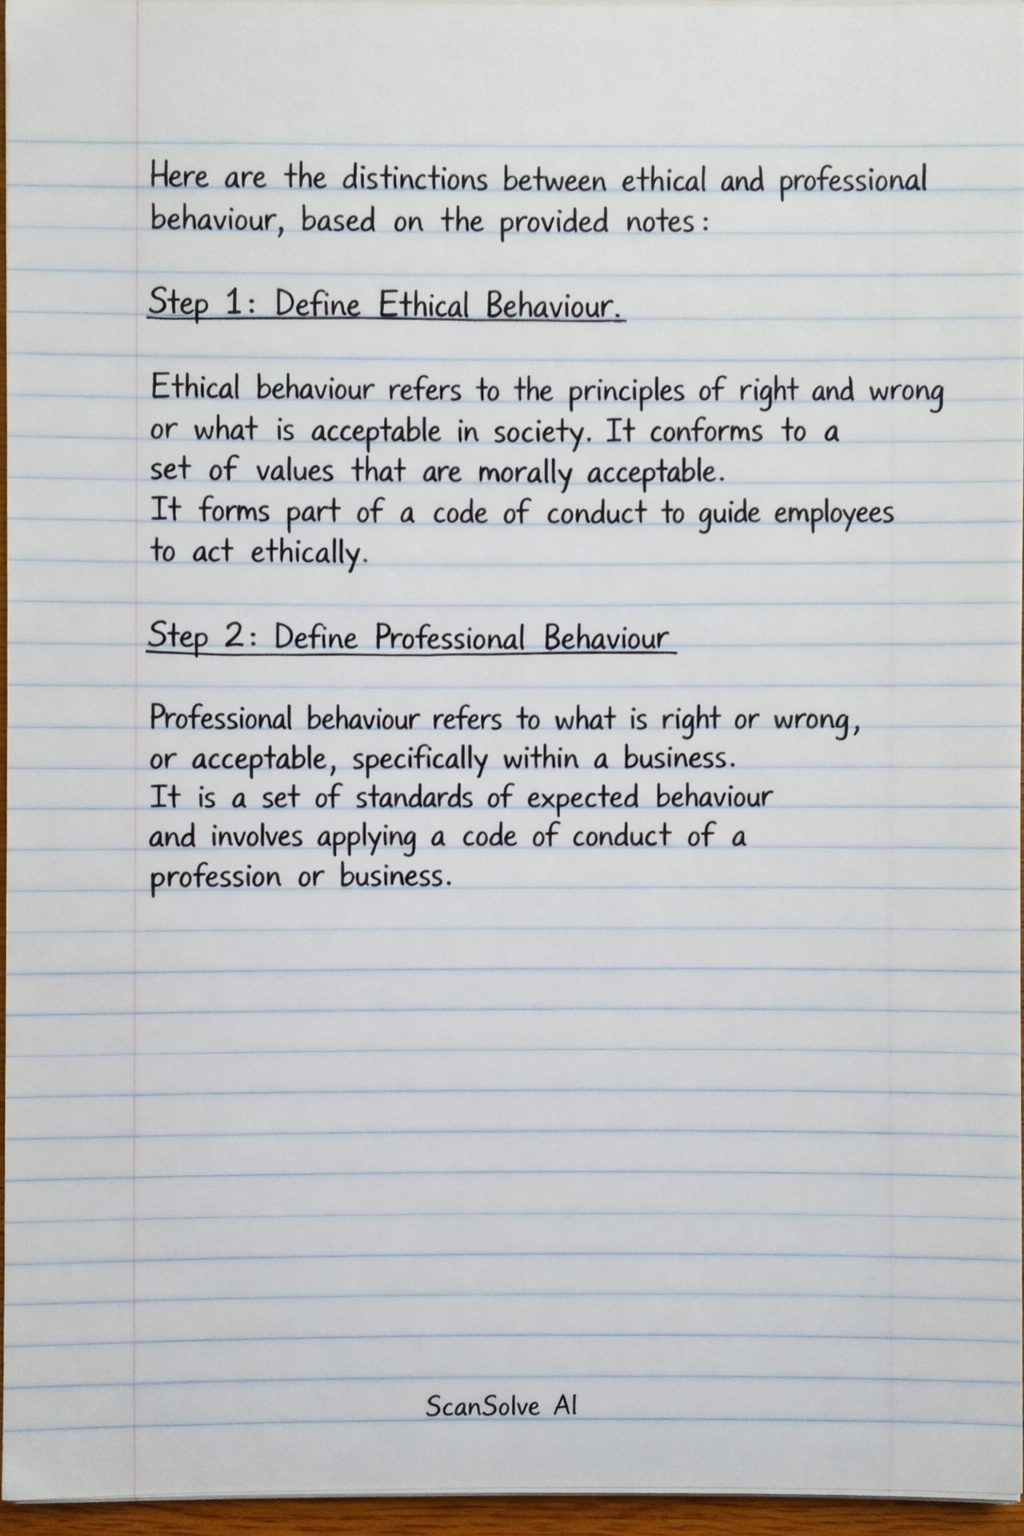 Here are the distinctions between ethical and professional
behaviour, based on the provided notes:
Step 1: Define Ethical Behaviour.
Ethical behaviour refers to the principles of right and wrong
or what is acceptable in society. It conforms to a
set of values that are morally acceptable.
It forms part of a code of conduct to guide employees
to act ethically.
Step 2: Define Professional Behaviour
Professional behaviour refers to what is right or wrong,
or acceptable, specifically within a business.
It is a set of standards of expected behaviour
and involves applying a code of conduct of a
profession or business.
ScanSolve AI